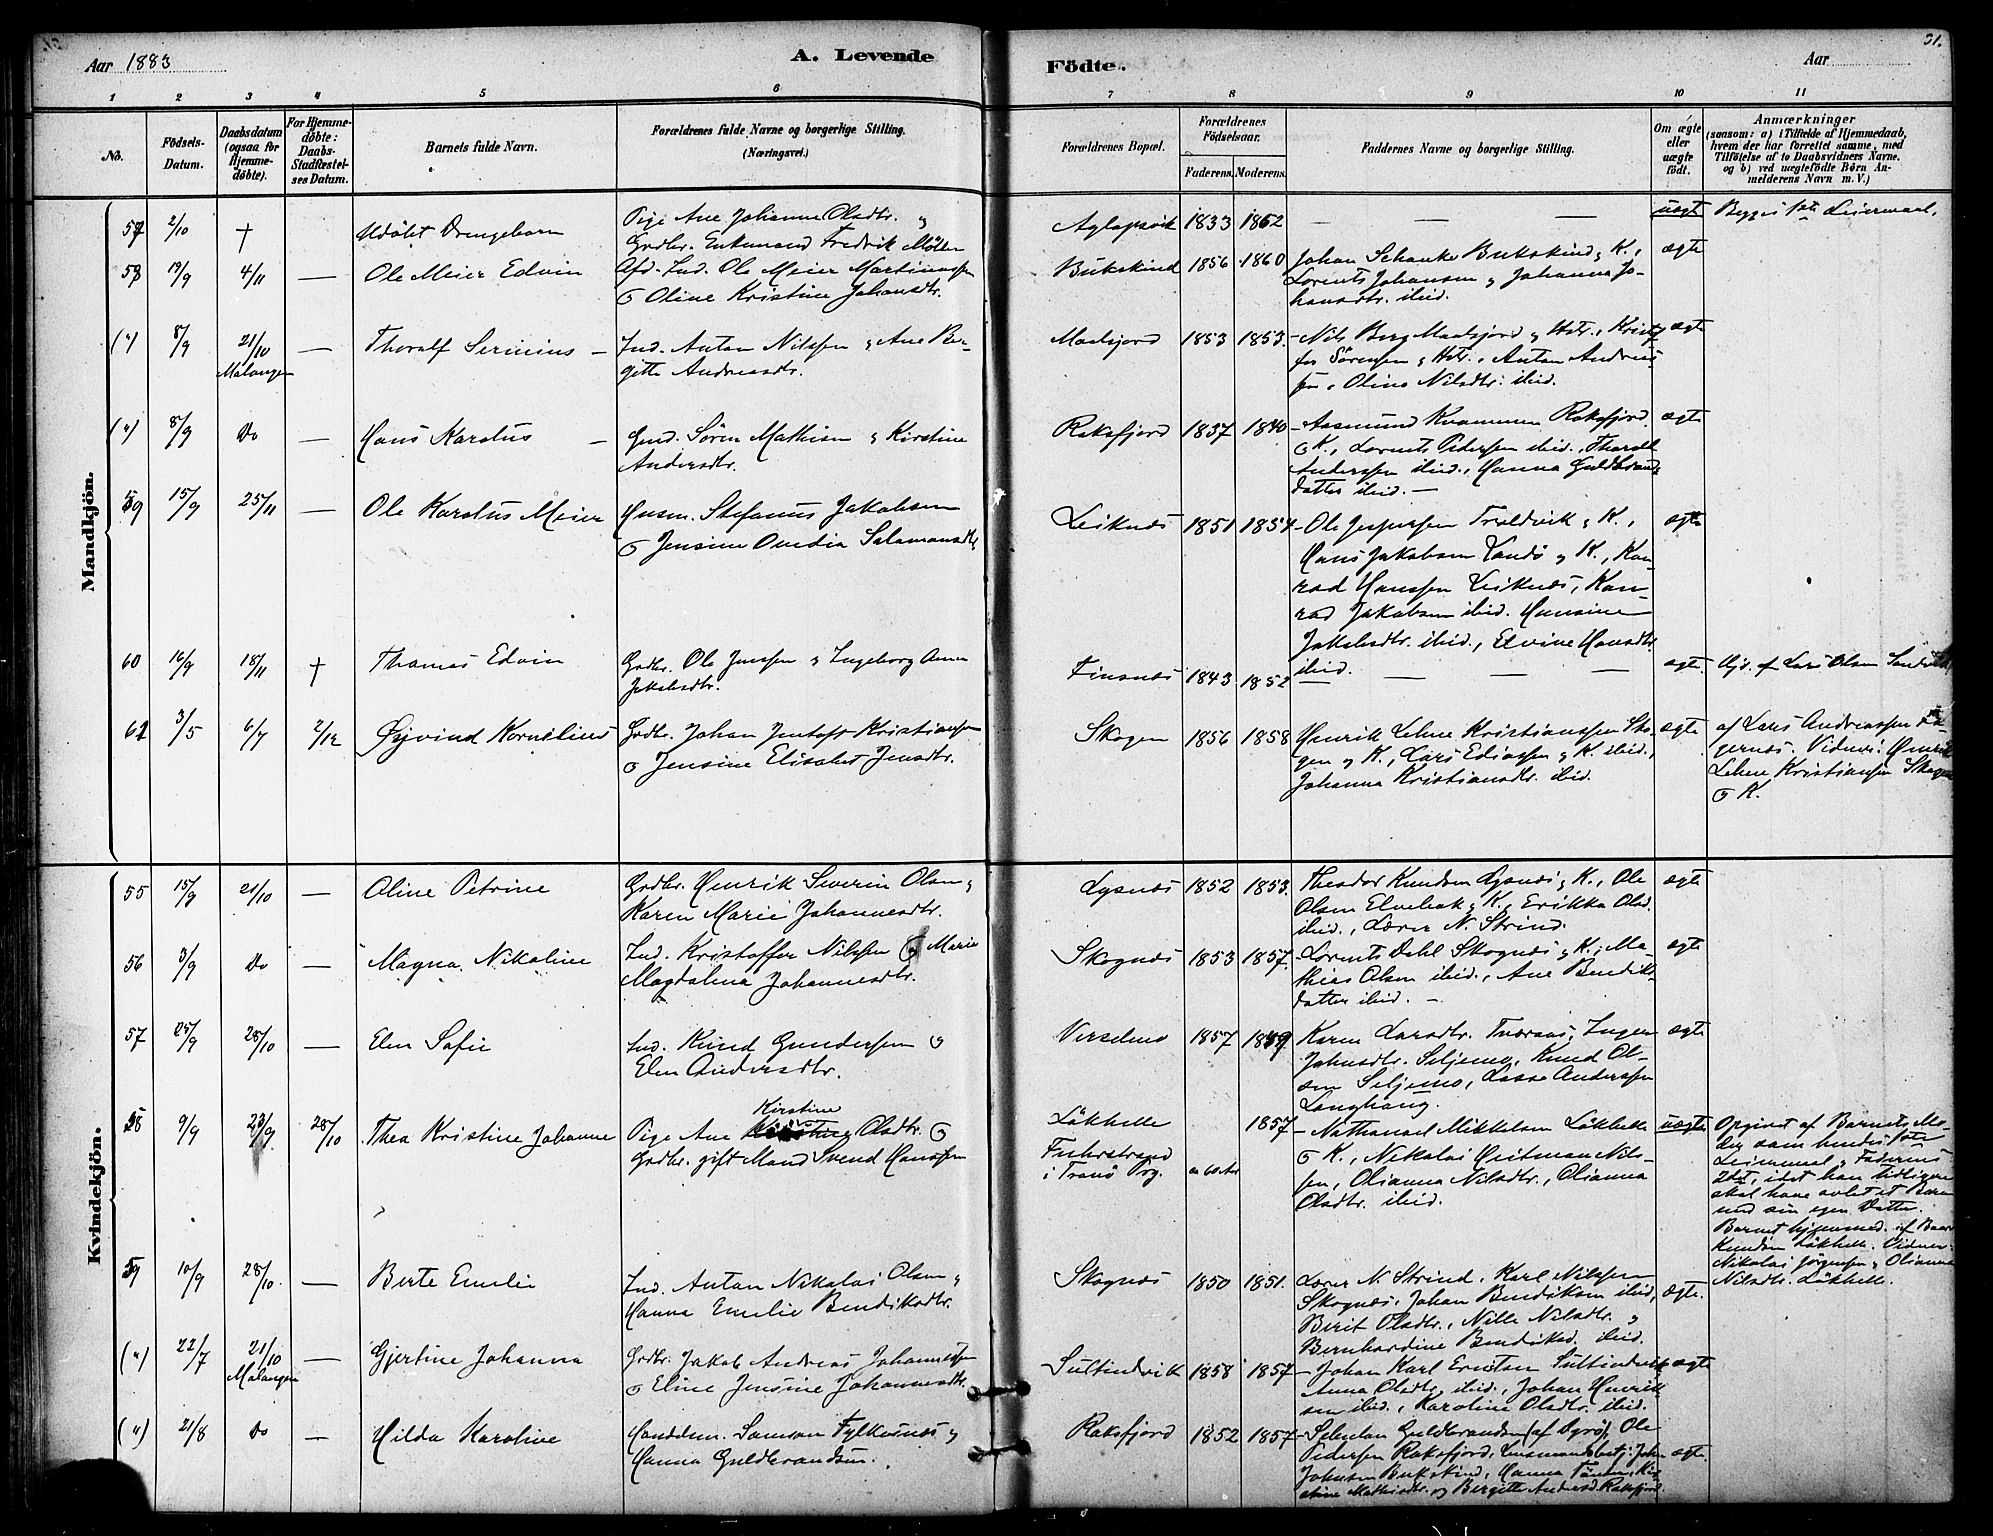 31.
Aar 1883
A. Levende
Födte.
Aar
1 2 3 4 5 6 7 8 9 10 11
No.
Födsels-
Datum.
Daabsdatum
(ogsaa for
Hjemme-
döbte).
For Hjemme-
döbte:
Daabs-
Stadfæstel-
ses Datum.
Barnets fulde Navn.
Forældrenes fulde Navne og borgerlige Stilling.
(Næringsvei.)
Forældrenes Bopæl.
Forældrenes
Födselsaar.
Faderens. Moderens.
Faddernes Navne og borgerlige Stilling.
Om ægte
eller
uægte
födt.
Anmærkninger
(saasom: a) i Tilfælde af Hjemmedaab,
hvem der har forrettet samme, med
Tilföielse af to Daabsvidners Navne.
og b) ved uægtefödte Börn An-
melderens Navn m. V.)
Mandkjön.
57 2/10 † Udöbt Drengebarn
Pige Ane Johanna Olsdtr. og
Grdbr. Enkemand Fredrik Möller
Aglapsvik 1833 1862 — — — uægte
Begges 1ste Leiermaal.
58 19/9 4/11 — Ole Meier Edvin
Afd. Ind. Ole Meier Martinussen
og Oline Kristine Johansdtr.
Bukskind 1856 1860
Johan Schanke Bukskind og K.,
Lorents Johansen og Johanna Jo-
hansdtr. ibid.
ægte
(") 8/9 21/10 Malangen — Thoralf Serinius —
Ind. Anton Nilssen og Ane Ber-
gitte Andreasdtr.
Maalsjord 1853 1853.
Nils Berg Maalsjord og Hstr., Krist-
fer Sörensen og Hstr., Anton Andreas-
sen, Oline Nilsdtr. ibid.
ægte
(") 8/9 Do — Hans Karolus —
Grd. Sören Mathisen og Kirstine
Andersdtr.
Raksfjord 1837 1840
Aasmund Kvammen Raksfjord
og K., Lornts Pedersen ibid., Thoralf
Anderssen ibid., Hanna Guldbrands-
datter ibid. —
ægte
59 15/9 25/11 — Ole Karolus Meier
Husm. Stefanus Jakobsen
og Jensine Ovedia Salamonsdtr.
Leiknes 1851 1854
Ole Jespersen Troldvik og K.,
Hans Jakobsen Vandö og K., Kon-
rad Hanssen Leiknes, Kon-
rad Jakobsen ibid. Hansine
Jakobsdtr. ibid., Elvine Hansdtr.
ibid.
ægte
60 16/9 18/11 † Thomas Edvin
Grdbr. Ole Jenssen og Ingeborg Anna
Jakobsdtr.
Finsnes 1843 1852 — — — — ægte
Hjd. af Lars Olsen Sandvik
61 3/5 6/7 2/12 Øivind Kornelius
Grdbr. Johan Jentoft Kristiansen
og Jensine Elisabet Jensdtr.
Skogen 1856 1858
Henrik Lehne Kristianssen Sko-
gen og K., Lars Eliassen og K. ibid.,
Johanna Kristiansdtr. ibid.
ægte
af Lars Andreassen
Vidner: Henrik
Lehne Kristiansen Skogen
og K.
Kvindekjön.
55 15/9 21/10 — Oline Petrine
Grdbr. Henrik Severin Olsen og
Karen Marie Johannesdtr.
Lysnes 1852 1853.
Theodor Knudsen Lysnes og K., Ole
Olsen Elvebak og K., Erikka Olsd.
ibid., Lærer N. Strind.
ægte
56 3/9 Do — Magna Nikoline
Ind. Kristoffer Nilssen og Marie
Magdalena Johannesdtr.
Skognes 1853 1857.
Lorents Dahl Skognes og K., Ma-
thias Olsen ibid., Ane Bendiks-
datter ibid. —
ægte
57 25/9 28/10 — Elen Sofie
Ind. Knud Gundersen og
Elen Andersdtr.
Verselmo 1857 1859
Karen Larsdtr. Tværaas, Inger
Johnsdtr. Seljemo, Knud Ol-
sen Seljemo, Lasse Anderssen
Langhaug.
ægte
58 9/9 23/9 28/10 Thea Kristine Johanne
Pige Ane Kirstine Olsdtr. og
Grdbr. gift Mand Svend Hanssen
Läkhelle
Fuhrstrand
i Tranö Prg.
ca 60 Aar 1857
Nathanael Mikkelsen Läkhelle
og K., Nikolai Heitman Nils-
sen, Olianna Nilsdtr., Olianna
Olsdtr. ibid.
uægte
Opgivet af Barnets Mo-
der som hendes 1ste
Leiermaal og Faderens
2det, idet han tidligere
skal have avlet et Barn
med sin egen Datter.
Barnet hjemmed. af Baar
Knudsen Läkhelle. Vidner:
Nikolai Jörgensen og Olianna
Nilsdtr. Läkhelle.
59 10/9 28/10 — Berte Emelie
Ind. Anton Nikolai Olsen og
Hanna Emelie Bendiksdtr.
Skognes 1850 1851.
Lærer N. Strind, Karl Nilssen
Skognes, Johan Bendiksen ibid.,
Berit Olsdtr., Nille Nilsdtr. og
Bernhardine Bendiksd. ibid.
ægte.
(") 22/7 21/10 Malangen — Gjertine Johanna
Grdbr. Jakob Andreas Johannessen
og Eline Jensine Johannesdtr.
Sultindvik 1858 1857
Johan Karl Erntsen Sultindvik,
Anna Olsdtr. ibid., Johan Henrik-
sen ibid., Karoline Olsdtr. ibid.
ægte
(") 21/8 Do — Hilda Karoline
Handelsm. Samson Fylkesnes og
Hanna Guldbrandsen.
Raksfjord 1852 1857
Guldbrandsen (af Dyrö), Ole
Pedersen Raksfjord, Lensmandsbetj. John
Johnsen Bukskind, Hanna Kir-
stine Mathisdtr. og Bergitte Andersd. Raksfjord.
ægte.